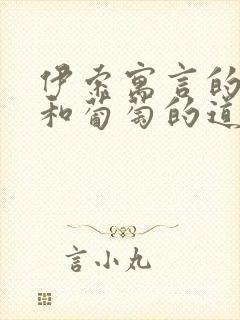 伊索寓言的
和葡萄的道
言小丸